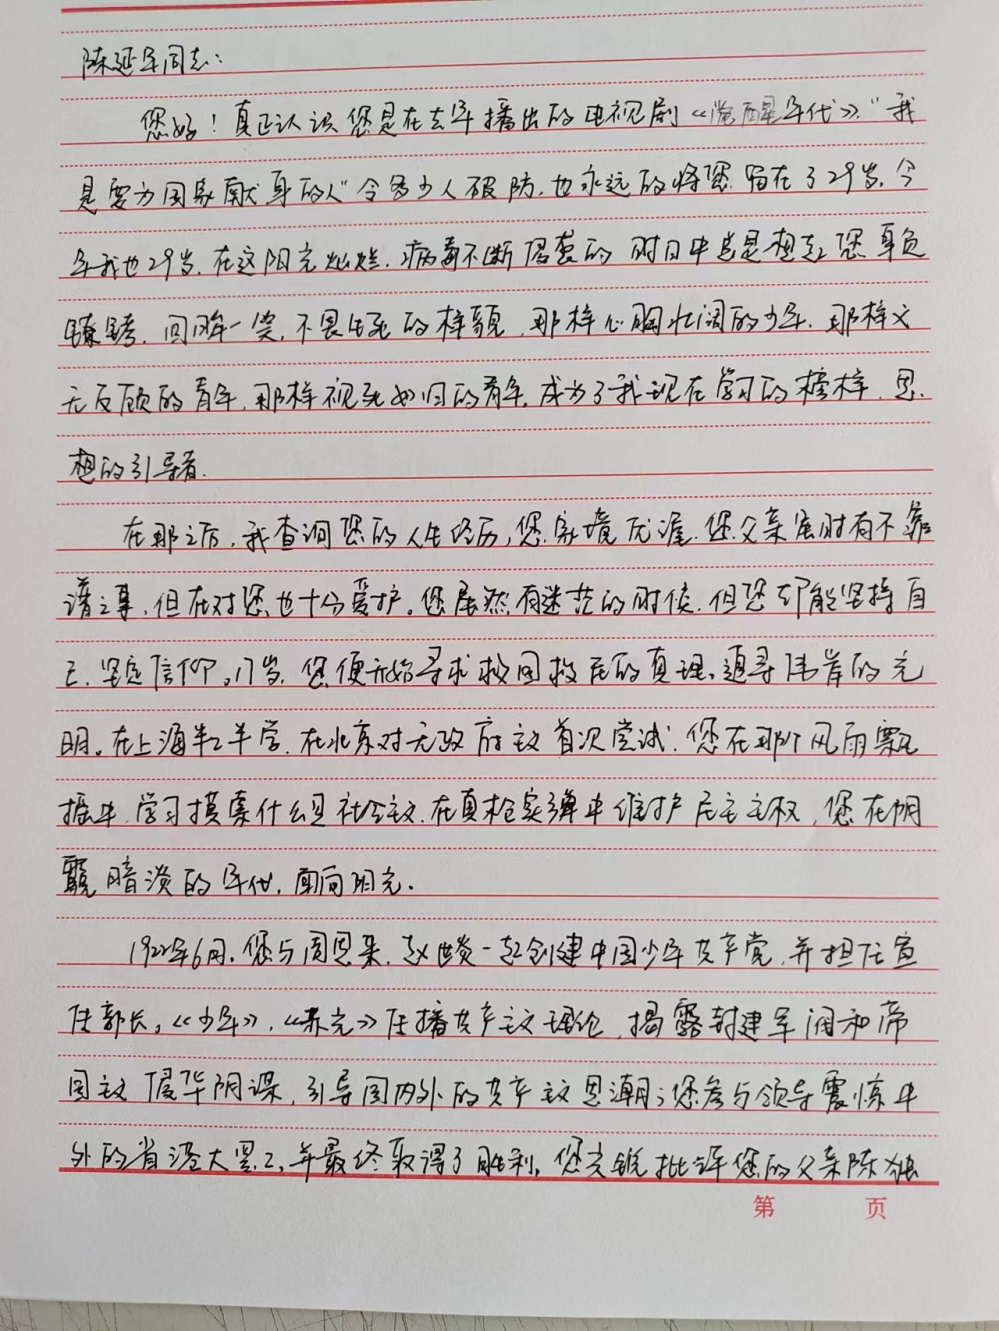 陈延年同志：
您好！真正认识您是在去年播出的电视剧《觉醒年代》，"我
是要为国家献身的人"令多少人破防，也永远的将您留在了29岁，今
年我也29岁，在这阳光灿烂，病毒不断侵袭的时日中总是想起您身负
镣铐，回眸一笑，不畏生死的样貌，那样心胸壮阔的少年，那样义
无反顾的青年，那样视死如归的青年，成为了我现在学习的榜样，思
想的引导者。
在那之后，我查询您的人生经历，您家境优渥，您父亲虽时有不靠
谱之事，但在对您也十分爱护。您虽然有迷茫的时候，但您却能坚持自
己，坚定信仰。17岁，您便开始寻求救国救民的真理，追寻伟岸的光
明。在上海半工半学，在北京对无政府主义首次尝试，您在那个风雨飘
摇中，学习摸索什么是社会主义，在真枪实弹中维护民主主权，您在阴
霾暗淡的年代，面向阳光。
1922年6月，您与周恩来，赵世炎一起创建中国少年共产党，并担任宣
传部长，《少年》，《赤光》传播共产主义理论，揭露封建军阀和帝
国主义侵华阴谋，引导国内外的共产主义思潮；您参与领导震惊中
外的省港大罢工，并最终取得了胜利，您尖锐批评您的父亲陈独
第 页